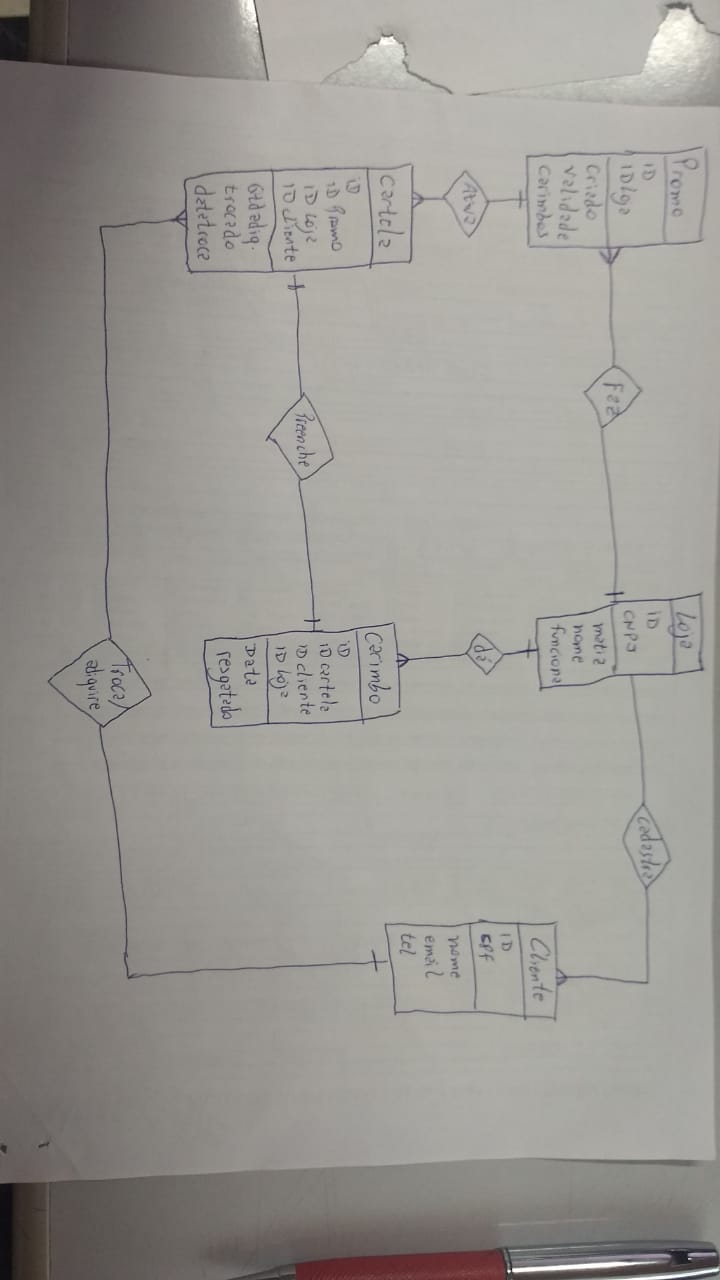 Promo
ID
IDLoja
Criado
validade
carimbos
Faz
Loja
ID
CNPJ
matiz
nome
funciona
cadastra
Cliente
ID
CPf
nome
email
tel
Ativa
dá
Cartela
ID
ID Promo
ID Loja
ID cliente
Qtdadiq.
trocado
datatroca
Preenche
Carimbo
ID
ID cartela
ID cliente
ID Loja
Data
resgatado
Troca/
adiquire